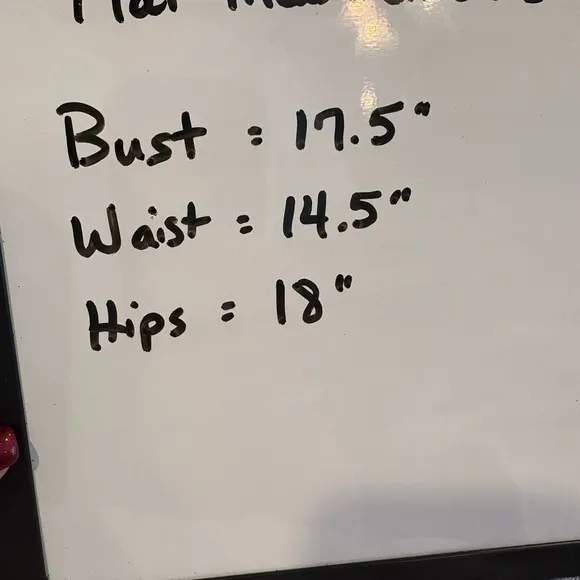 Flat Measurements
Bust = 17.5"
Waist = 14.5"
Hips = 18"